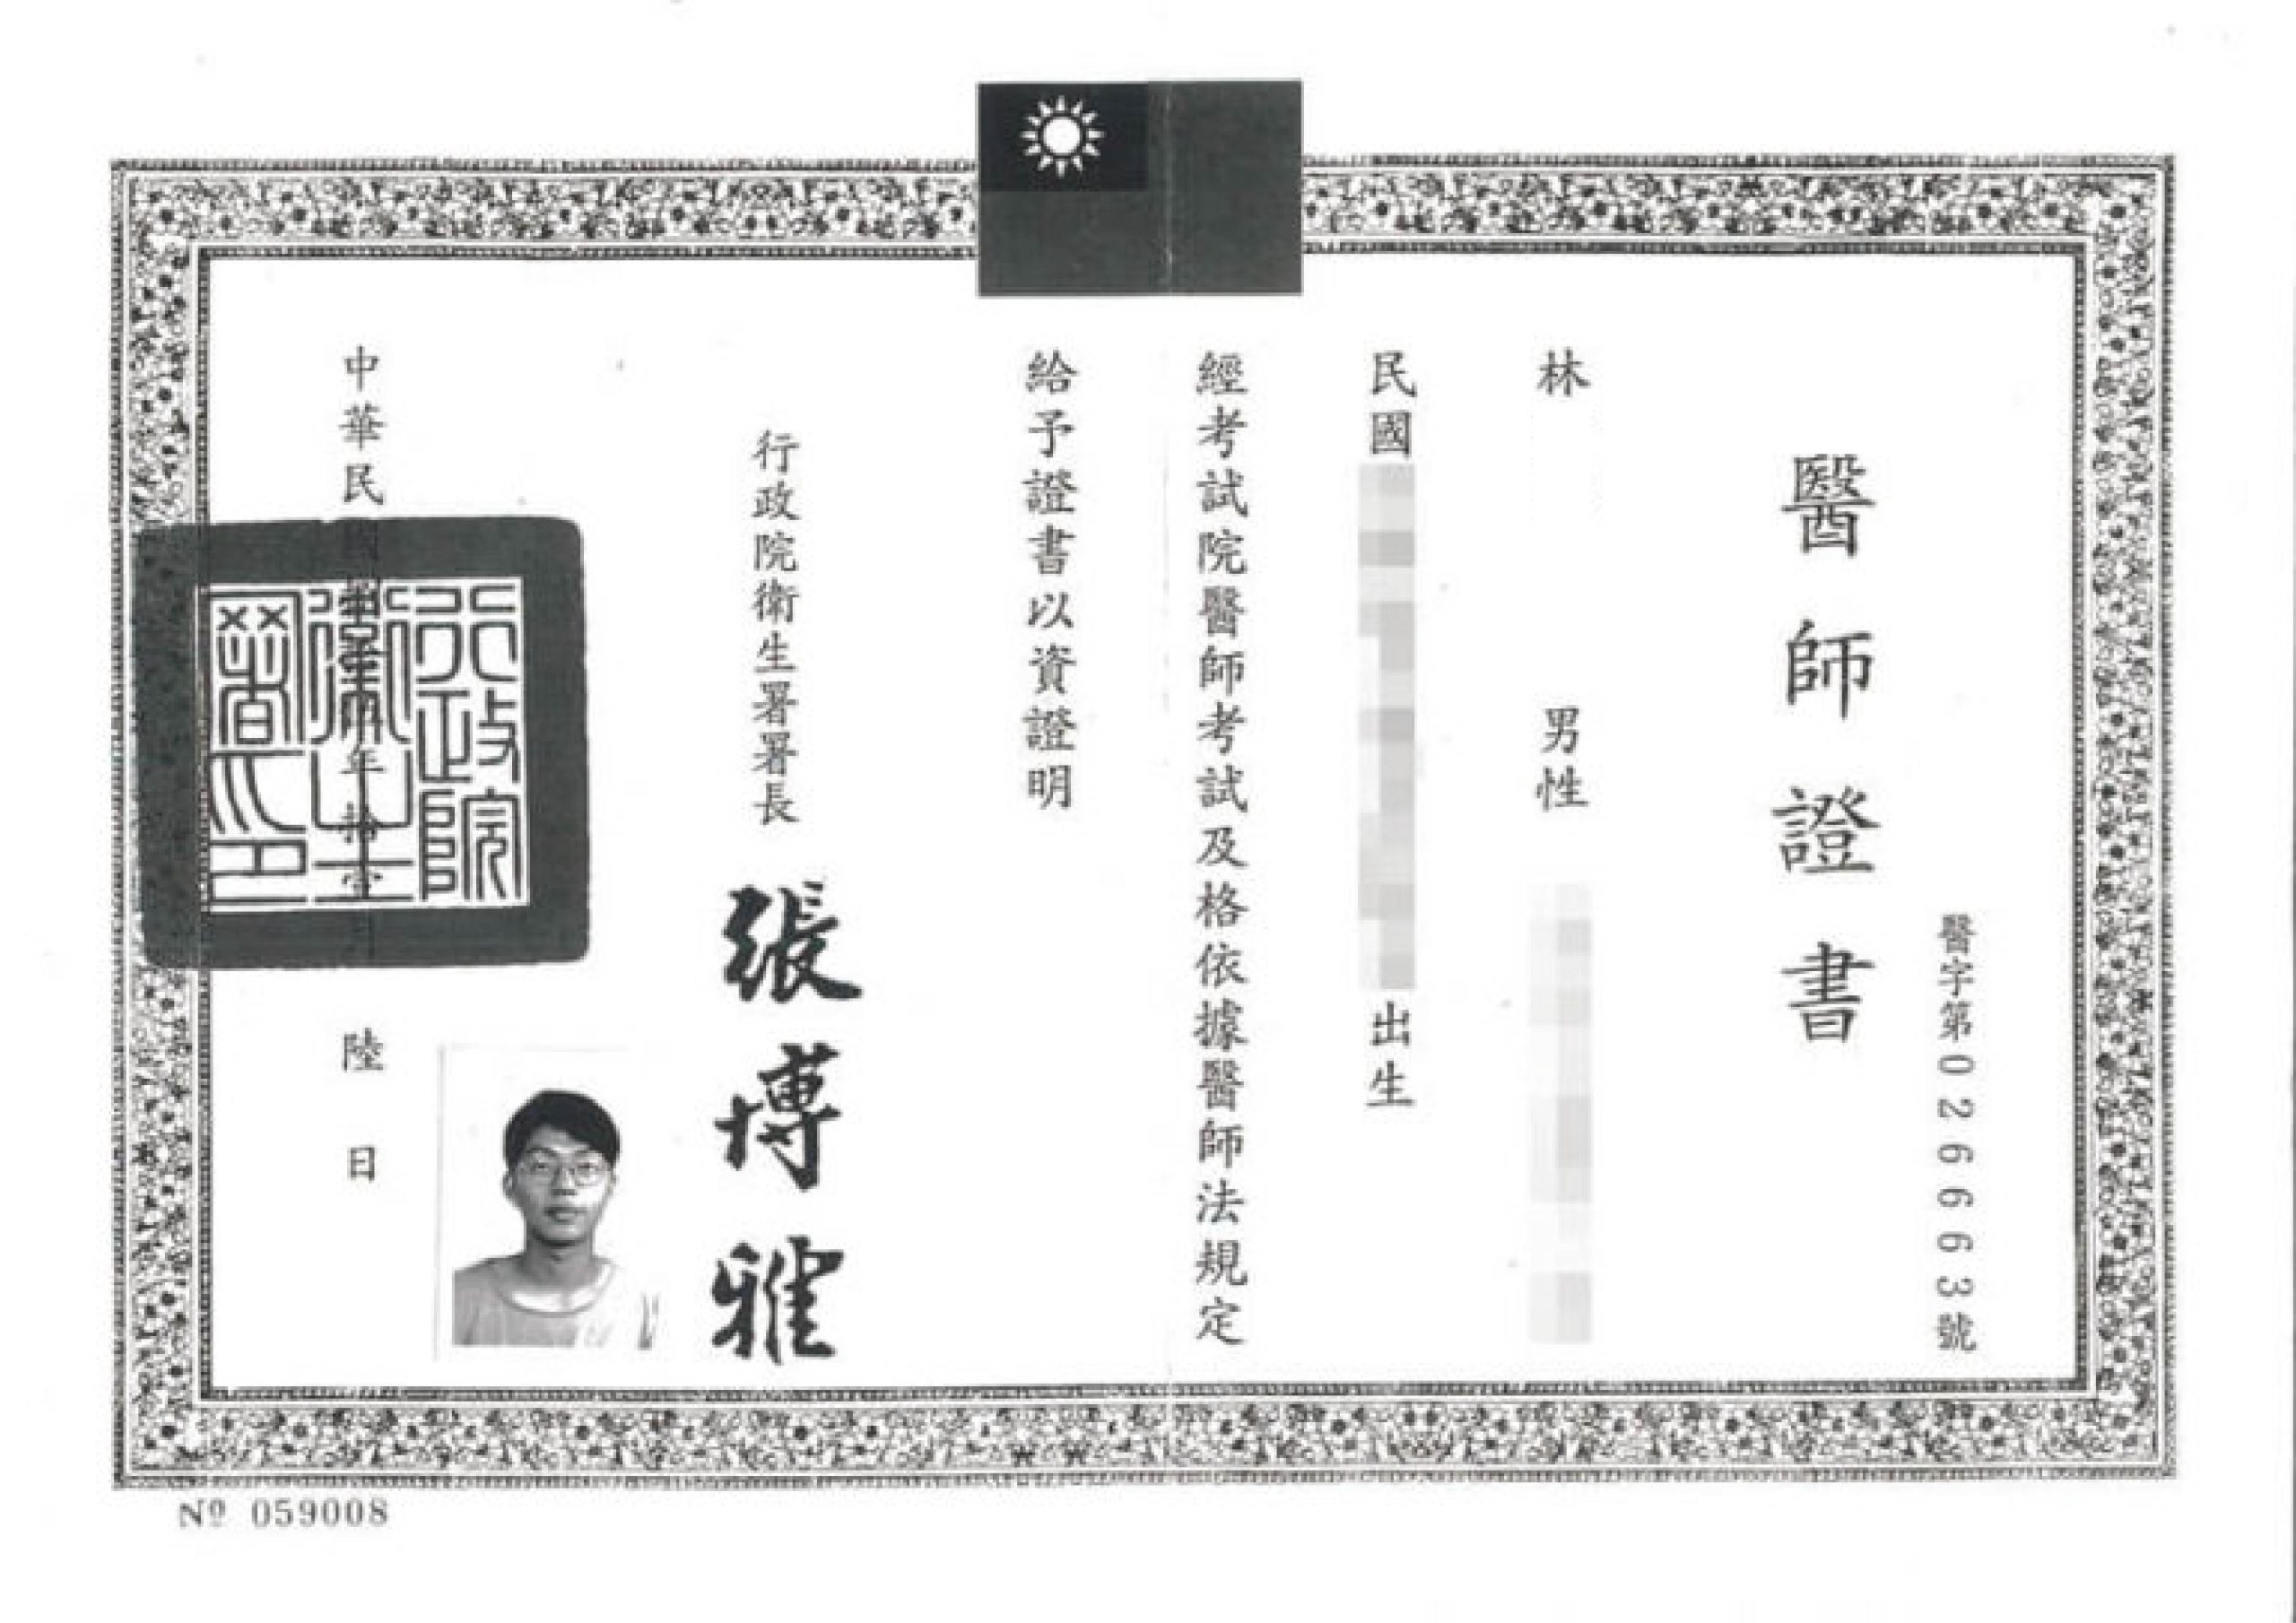 醫字第026663號
醫師證書
林 男性
民國 出生
經考試院醫師考試及格依據醫師法規定
給予證書以資證明
行政院衛生署署長 張博雅
中華民 年拾壹 陸日
行政院
衛生
署印
Nº 059008